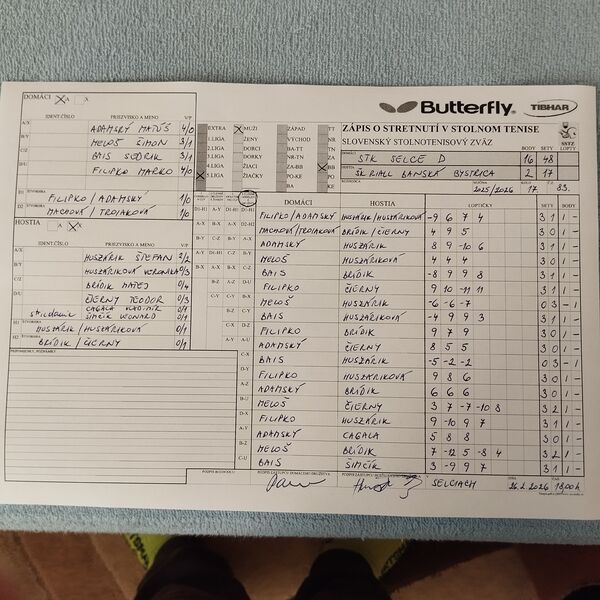 DOMÁCI A X
Butterfly. TIBHAR
IDENT.ČÍSLO PRIEZVISKO A MENO V/P
ADAMSKÝ MATÚŠ 4/0
MELOŠ ŠIMON 3/1
BAIS 3/1
FILIPKO MARKO 4/0
ŠTVORHRA
FILIPKO / ADAMSKÝ 1/0
MACHOVÁ / TROJAKOVÁ 1/0
HOSTIA A X
IDENT.ČÍSLO PRIEZVISKO A MENO V/P
HUSZÁRIK ŠTEFAN 2/2
HUSZÁRIKOVÁ VERONIKA 0/3
BRÍDIK MATEJ 0/4
ČIERNY TEODOR 0/3
CAGALA VLADIMÍR 0/1
ŠIMČÍK LEONARD 0/1
HUSZÁRIK / HUSZÁRIKOVÁ 0/1
BRÍDIK / ČIERNY 0/1
PRIPOMIENKY, POZNÁMKY
EXTRA MUŽI ZÁPAD TT
1.LIGA ŽENY VÝCHOD NR
2.LIGA DORCI BA-TT TN
3.LIGA DORKY NR-TN ZA
4.LIGA ŽIACI ZA-BB BB
5.LIGA ŽIAČKY PO-KE PO
BA KE
ZÁPIS O STRETNUTÍ V STOLNOM TENISE
SLOVENSKÝ STOLNOTENISOVÝ ZVÄZ
SSTZ
BODY SETY LOPTY
STK SELCE D 16 48
ŠK RIALL BANSKÁ BYSTRICA 2 17
2025/2026 17. 83.
DOMÁCI HOSTIA LOPTIČKY SETY BODY
FILIPKO / ADAMSKÝ HUSZÁRIK / HUSZÁRIKOVÁ -9 6 7 4 3 1 1 -
MACHOVÁ / TROJAKOVÁ BRÍDIK / ČIERNY 4 9 5 3 0 1 -
ADAMSKÝ HUSZÁRIK 8 9 -10 6 3 1 1 -
MELOŠ HUSZÁRIKOVÁ 4 4 4 3 0 1 -
BAIS BRÍDIK -8 9 9 8 3 1 1 -
FILIPKO ČIERNY 9 10 -11 11 3 1 1 -
MELOŠ HUSZÁRIK -6 -6 -7 0 3 - 1
BAIS HUSZÁRIKOVÁ -4 9 9 3 3 1 1 -
FILIPKO BRÍDIK 9 7 9 3 0 1 -
ADAMSKÝ ČIERNY 8 5 5 3 0 1 -
BAIS HUSZÁRIK -5 -2 -2 0 3 - 1
FILIPKO HUSZÁRIKOVÁ 9 8 6 3 0 1 -
ADAMSKÝ BRÍDIK 6 6 6 3 0 1 -
MELOŠ ČIERNY 3 7 -7 -10 8 3 2 1 -
FILIPKO HUSZÁRIK 9 -10 9 7 3 1 1 -
ADAMSKÝ CAGALA 5 8 8 3 0 1 -
MELOŠ BRÍDIK 7 -12 5 -8 4 3 2 1 -
BAIS ŠIMČÍK 3 -9 9 7 3 1 1 -
PODPIS ROZHODCU PODPIS ZÁSTUPCU DOMÁCEHO DRUŽSTVA
SELCIACH 26.2.2026 18,00 h